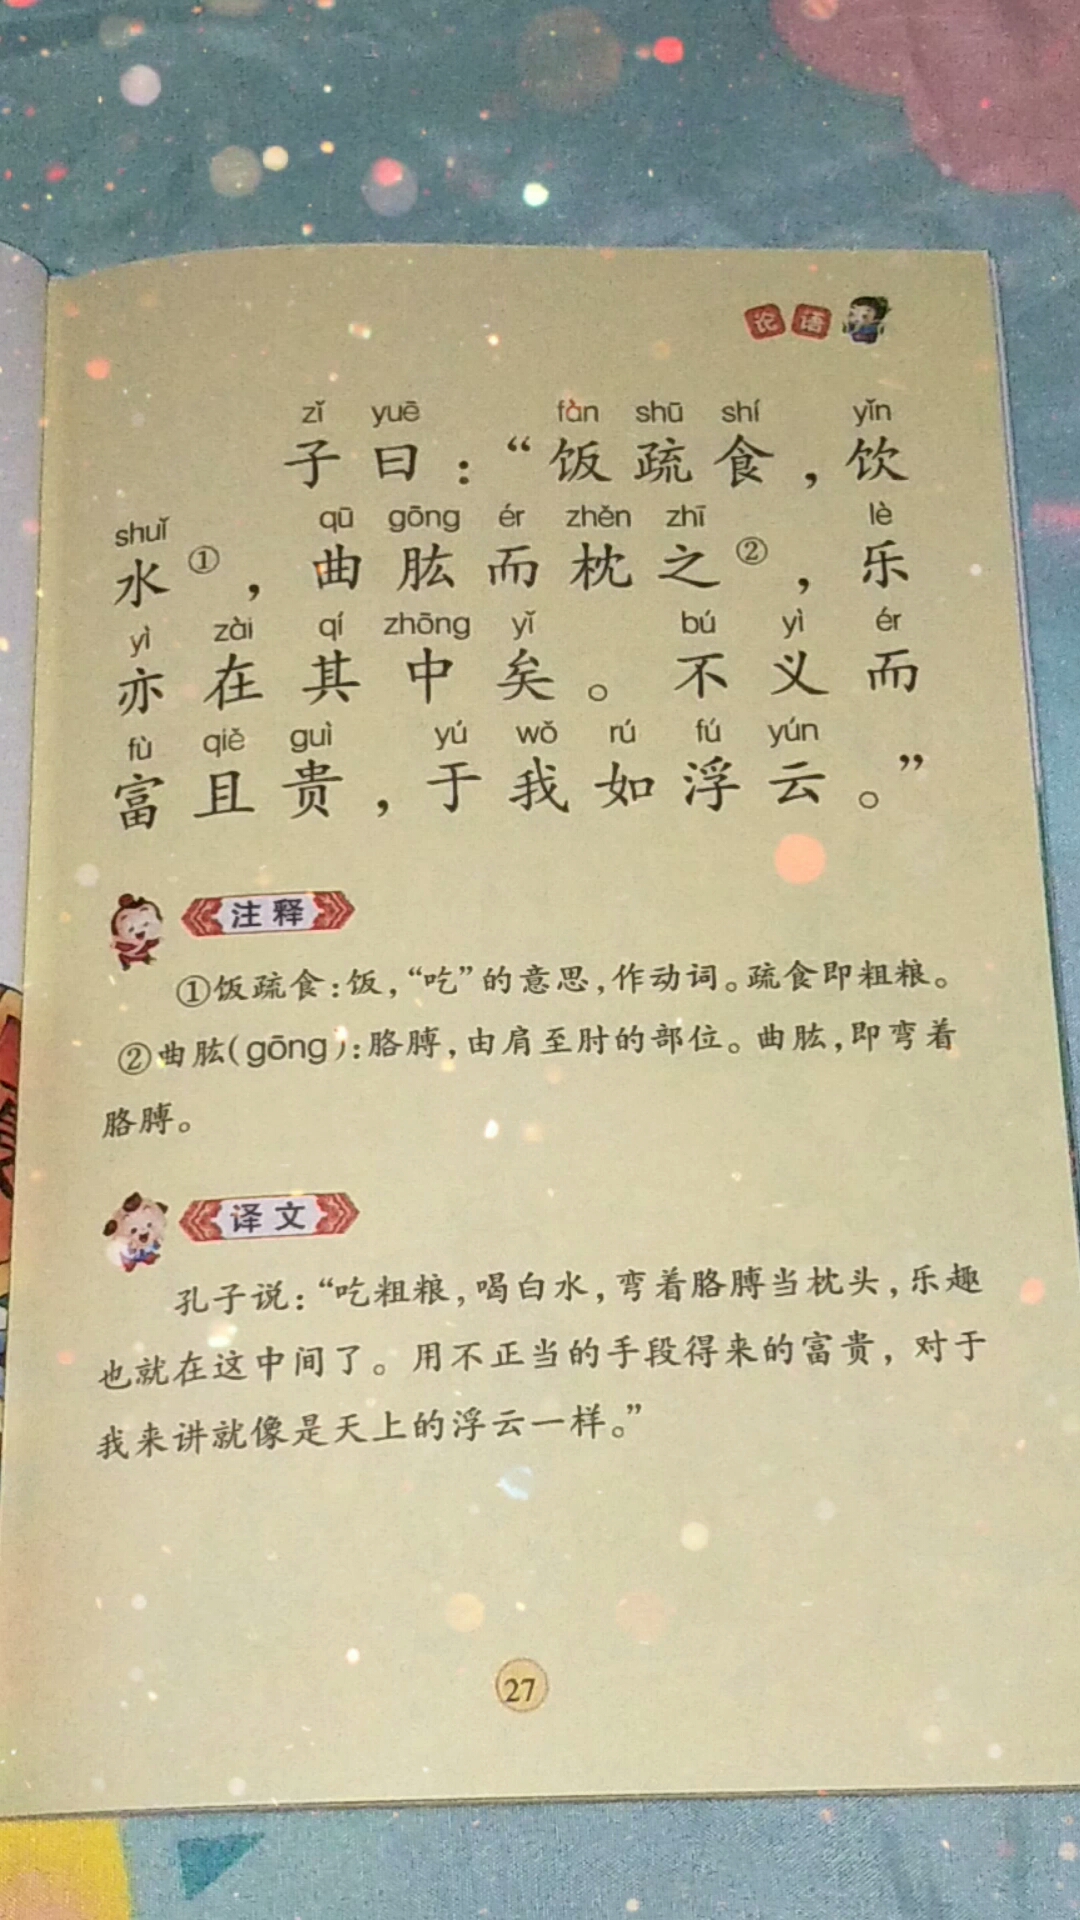 论语
zǐ yuē fàn shū shí yǐn
子曰：“饭疏食，饮
shuǐ qū gōng ér zhěn zhī lè
水①，曲肱而枕之②，乐
yì zài qí zhōng yǐ bú yì ér
亦在其中矣。不义而
fù qiě guì yú wǒ rú fú yún
富且贵，于我如浮云。”
注释
①饭疏食：饭，“吃”的意思，作动词。疏食即粗粮。
②曲肱(gōng)：胳膊，由肩至肘的部位。曲肱，即弯着
胳膊。
译文
孔子说：“吃粗粮，喝白水，弯着胳膊当枕头，乐趣
也就在这中间了。用不正当的手段得来的富贵，对于
我来讲就像是天上的浮云一样。”
27